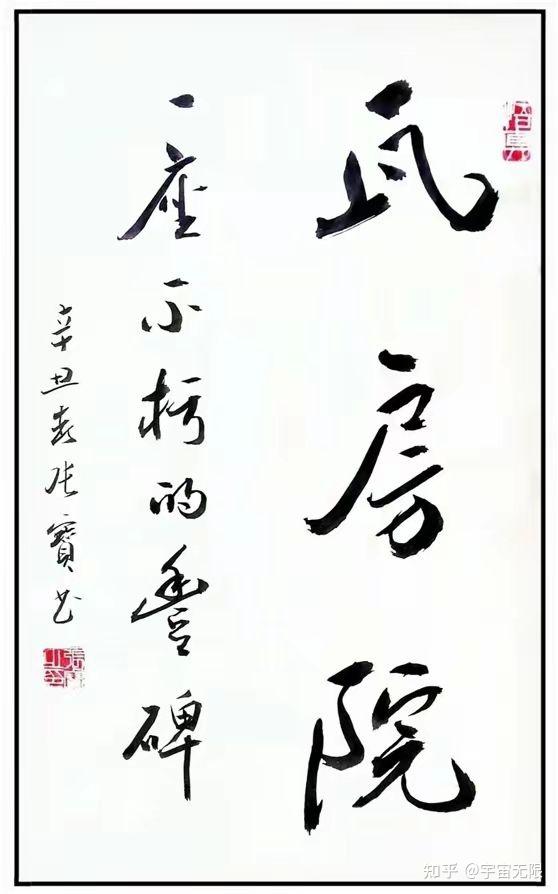 瓦房院
一座不朽的豐碑
辛丑春张寶书
知乎 @宇宙无限